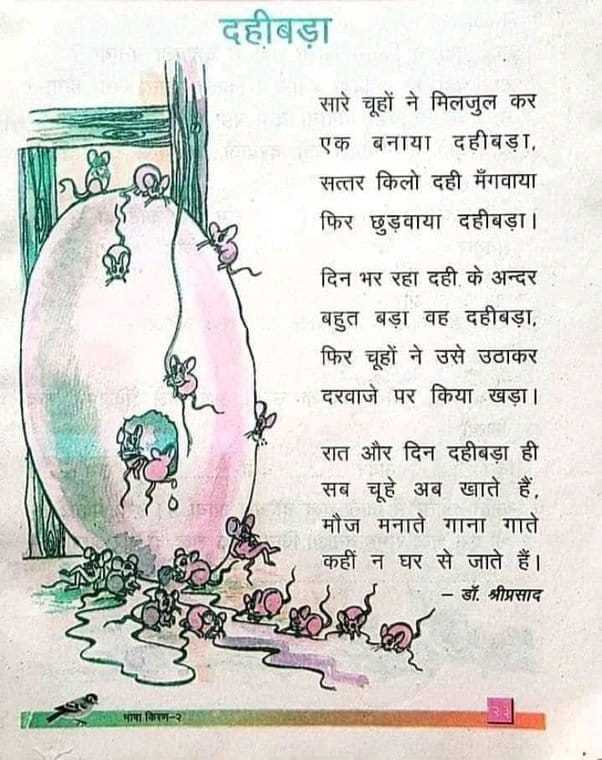 दहीबड़ा
सारे चूहों ने मिलजुल कर
एक बनाया दहीबड़ा,
सत्तर किलो दही मँगवाया
फिर छुड़वाया दहीबड़ा।
दिन भर रहा दही के अन्दर
बहुत बड़ा वह दहीबड़ा,
फिर चूहों ने उसे उठाकर
दरवाजे पर किया खड़ा।
रात और दिन दहीबड़ा ही
सब चूहे अब खाते हैं,
मौज मनाते गाना गाते
कहीं न घर से जाते हैं।
– डॉ. श्रीप्रसाद
भाषा किरण–२